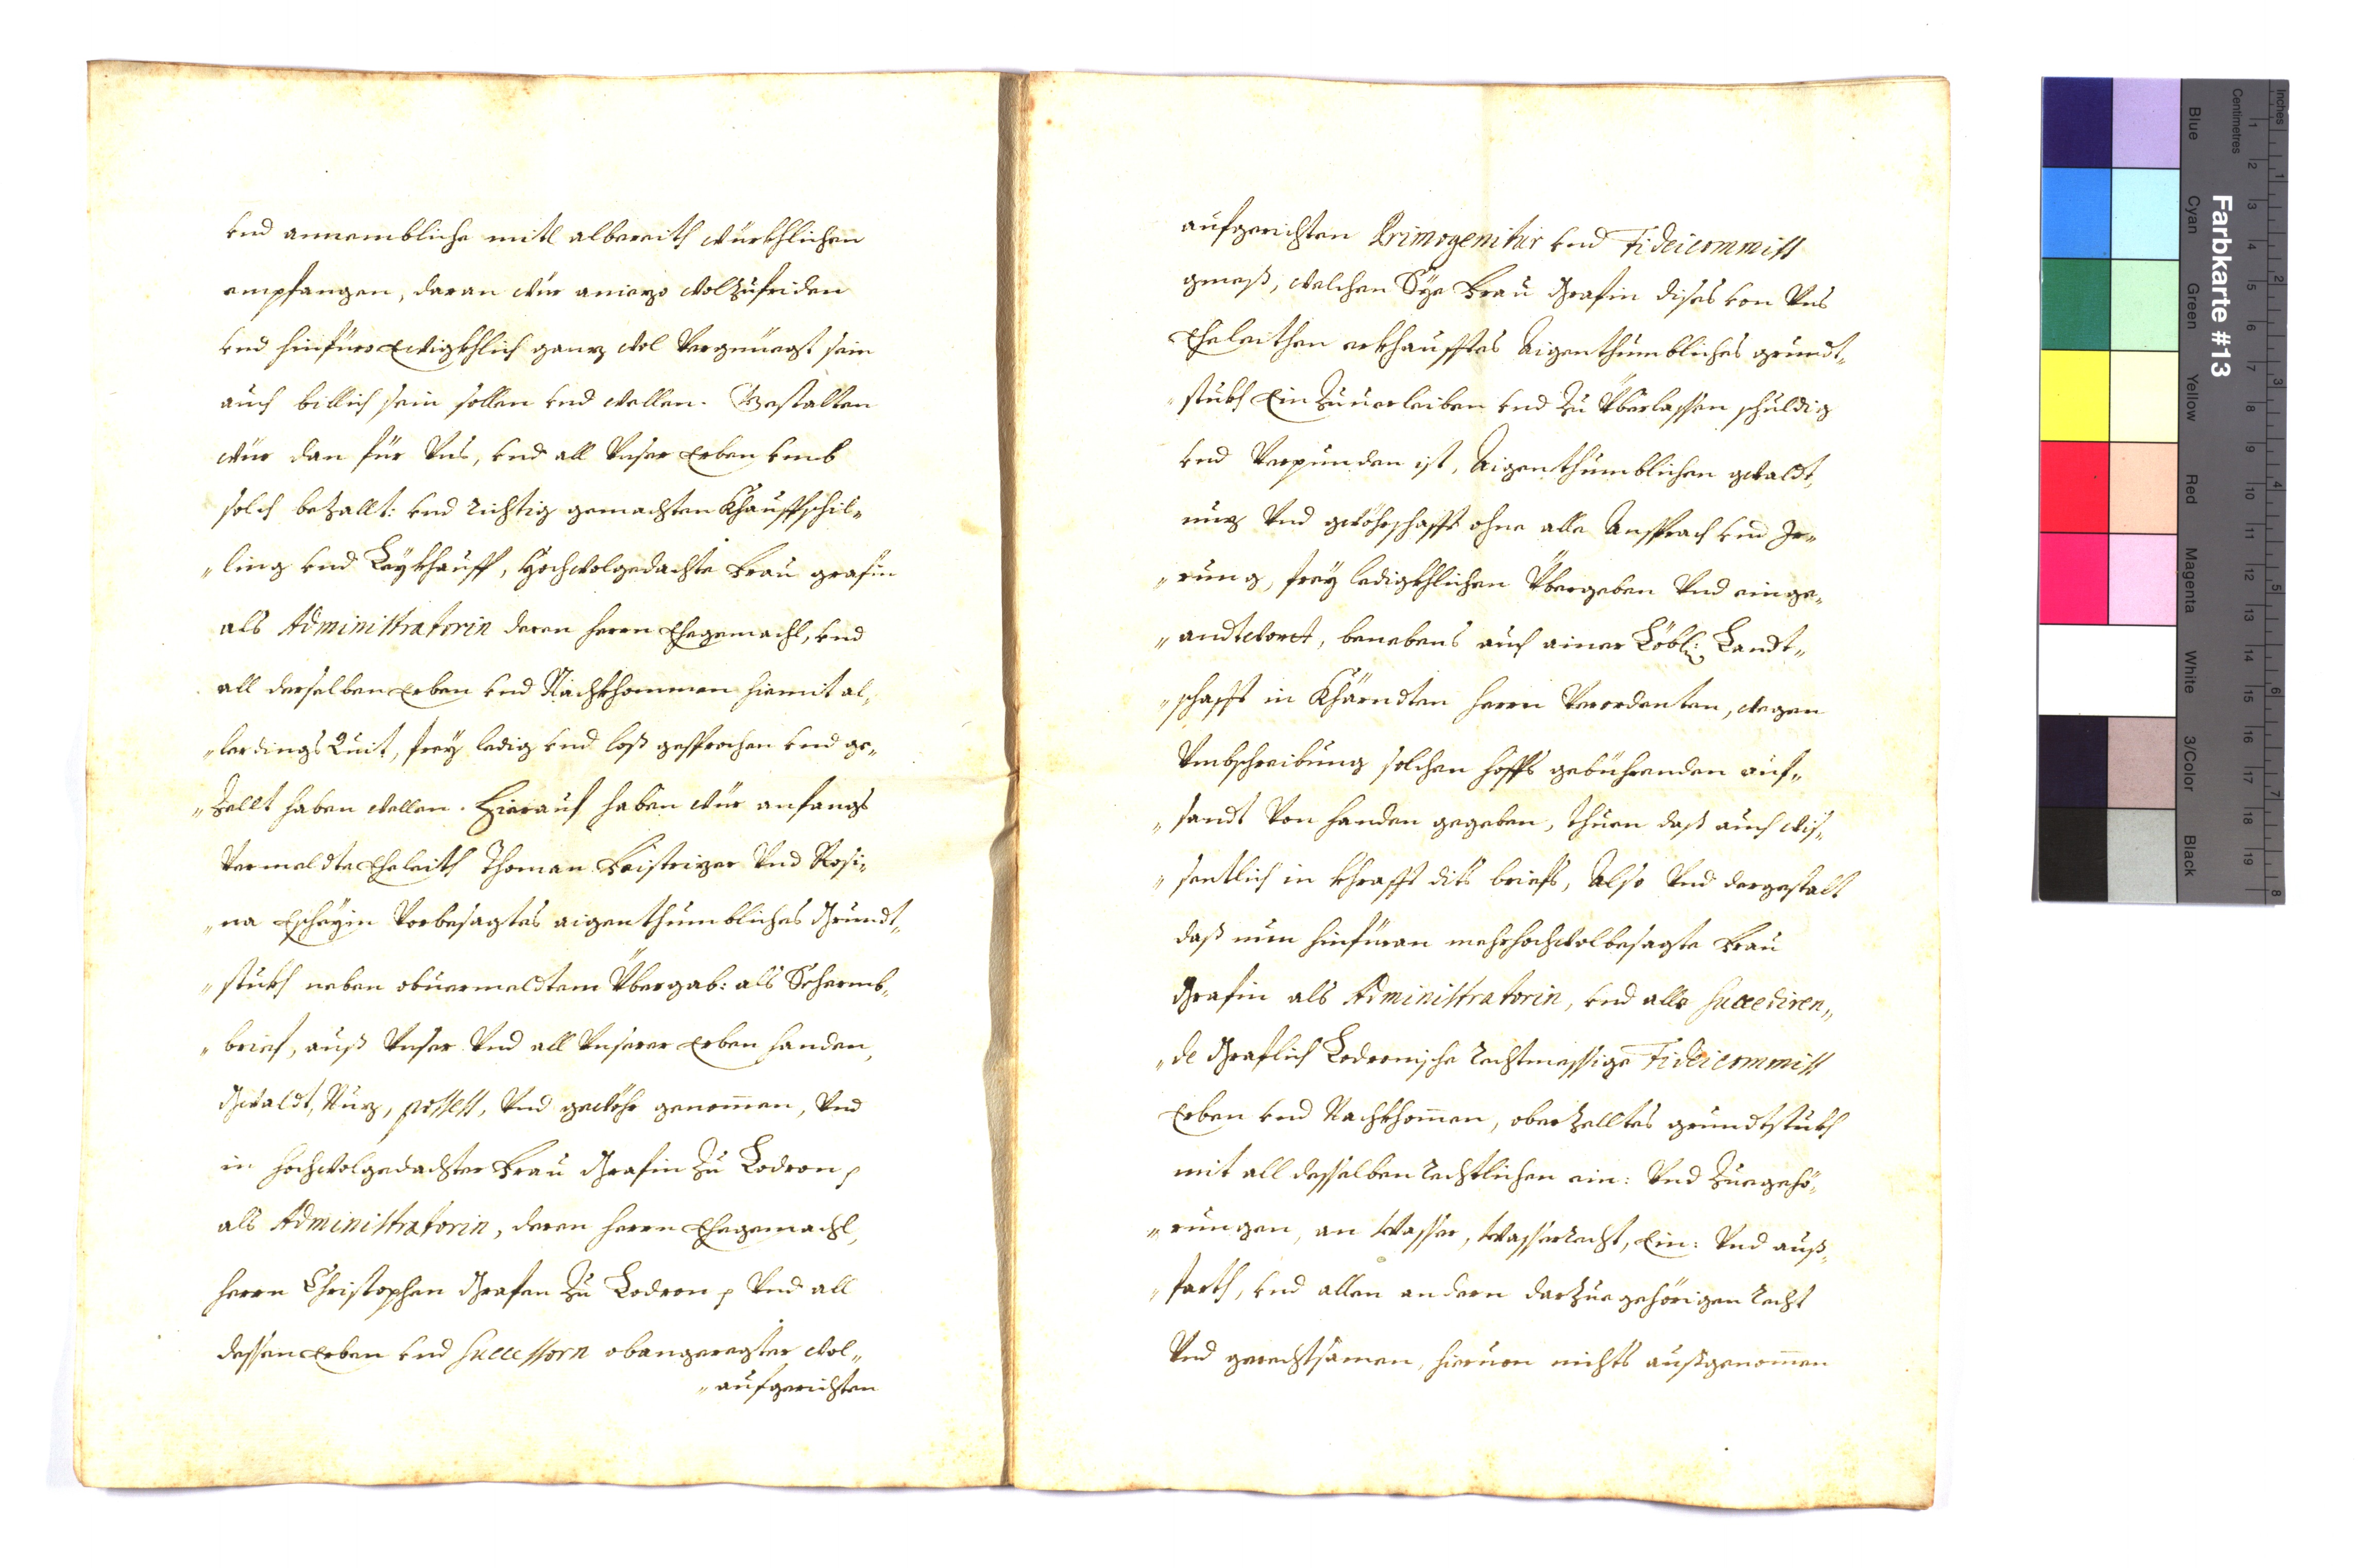 vnd annembliche mitl albereith würkhlichen
empfangen, daran wür aniezo wolzufriden
vnd hinfüro Ewigkhlich ganz wol Vergnüegt sein
auch billich sein sollen vnd wellen. Gestalten
wür dan für Vns, vnd all Vnser Erben vmb
solch bezallt: vnd richtig gemachten Khauffschil„
„ling vnd Leykhauff, Hochwolgedachte Frau grafin
als Administratorin deren herrn Ehegemachl, vnd
all derselben Erben vnd Nachkhommen hiemit al„
„lerdings Quit, frey ledig vnd loß gesprochen vnd ge„
„zellt haben wellen. Hierauf haben wür anfangs
Vermeldte Eheleith Thoman Feistrizer Vnd Rosi„
„na Escheyin Vorbesagtes aigenthumbliches Grundt„
„stukh neben obuermeldtem Übergab: als Schermb„
„brief, auß Vnser Vnd all Vnserer Erben handen,
Gwaldt, Nuz, possess, Vnd gewöhr genomen, Vnd
in hochwolgedachter Frau Grafin zu Lodron p
als Administratorin, deren herrn Ehegemachl,
herrn Christophen Grafen zu Lodron p Vnd all
dessen Erben vnd Successorn obangeregter wol„
„aufgerichten
aufgerichten Primogenitur vnd Fideicommiss
gmeß, welchen Sye Frau Grafin dises von Vns
Eheleithen erkhaufftes Aigenthumbliches grundt„
„stukh Ein zuuerleiben vnd zu Überlassen schuldig
vnd Verpunden ist, Aigenthumblichen gwaldt,
nuz Vnd gwöhrschafft ohne alle Ansprach vnd Jr„
„rung, frey ledigkhlichen Übergeben Vnd einge„
„andtwort, benebens auch ainer Löbl: Landt„
„schafft in Khärndten herrn Verordenten, wegen
Vmbschreibung solchen hoffs gebührenden auf„
„sandt Von handen gegeben, thuen daß auch wis„
„sentlich in khrafft dits briefs, Also Vnd dergestalt
daß nun hinfüran mehrhochwolbesagte Frau
Grafin als Administratorin, vnd alle Succediren„
„de Graflich Lodronische rechtmessige Fideicommiss
Erben vnd Nachkhomen, oberzelltes grundtstukh
mit all desselben rechtlichen ein: Vnd zuegehö„
„rungen, an Wasser, Wasserrecht, Ein: Vnd auß„
„farth, vnd allen andern darzue gehörigen recht
Vnd gerechtsamen, hieruon nichts außgenomen
Farbkarte #13
Inches
Centimetres
1 2 3 4 5 6 7 8 9 10 11 12 13 14 15 16 17 18 19
1 2 3 4 5 6 7 8
Blue Cyan Green Yellow Red Magenta White 3/Color Black